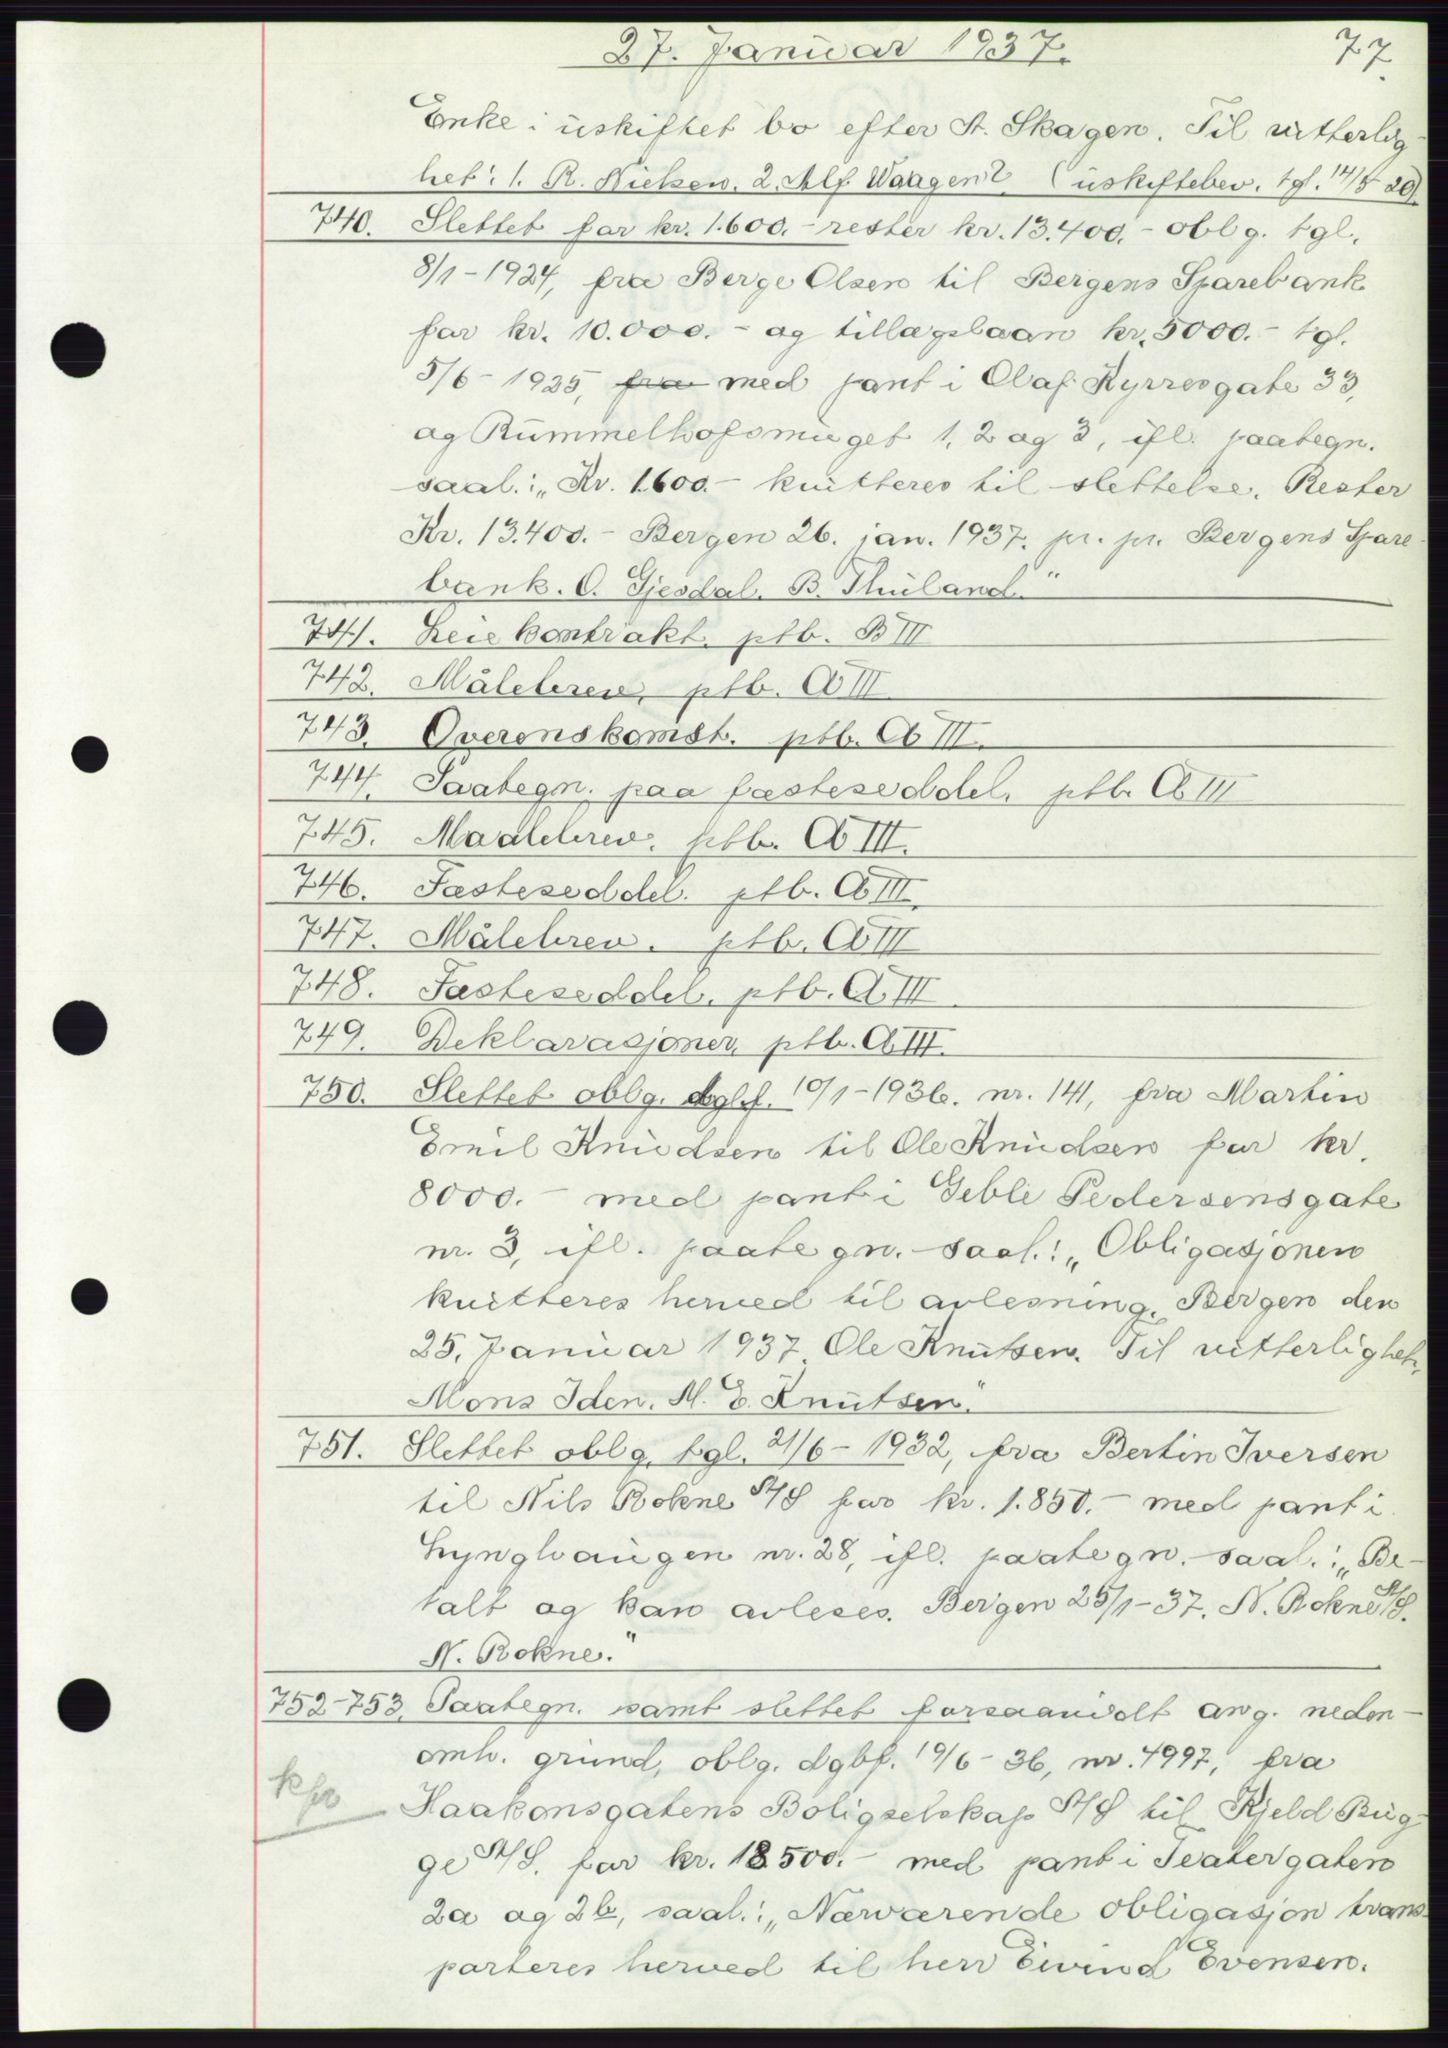 27. Januar 1937.
77.
Enke i uskiftet bo efter St. Skagen. Til vitterlig-
het: 1. R. Nielsen. 2. Alf Waagen (uskiftebev. tgl. 14/8 20)
740. Slettet for kr. 1.600.- rester kr. 13.400.- oblg. tgl.
8/1-1924, fra Berge Olsen til Bergens Sparebank
for kr. 10.000.- og tillægslaan kr. 5000.- tgl.
5/6-1925, fra med pant i Olaf Kyrresgate 33,
og Rummelhofsmuget 1, 2 og 3, ifl. paategn.
saal.: „Kr. 1600.- kvitteres til slettelse. Rester
Kr. 13.400.- Bergen 26. jan. 1937. pr. pr. Bergens Spare-
bank. O. Gjesdal. B. Thuland."
741. Leiekontrakt. ptb. B III
742. Målebrev, ptb. A III
743. Overenskomst. ptb. A III.
744. Paategn. paa festeseddel. ptb. A III
745. Maalebrev. ptb. A III.
746. Festeseddel. ptb. A III.
747. Målebrev. ptb. A III
748. Festeseddel. ptb. A III.
749. Deklarasjoner, ptb. A III.
750. Slettet oblg. dgbf. 10/1-1936. nr. 141, fra Martin
Emil Knudsen til Ole Knudsen for kr.
8000.- med pant i Geble Pedersensgate
nr. 3, ifl. paategn. saal.: „Obligasjonen
kvitteres herved til avlesning. Bergen den
25. Januar 1937. Ole Knutsen. Til vitterlighet,
Mons Iden. M. E. Knutsen."
751. Slettet oblg. tgl. 21/6-1932, fra Bertin Iversen
til Nils Rokne A/S for kr. 1.850.- med pant i
Lynghaugen nr. 28, ifl. paategn. saal.: „Be-
talt og kan avleses. Bergen 25/1-37. N. Rokne A/S.
N. Rokne."
752-753. Paategn. samt slettet forsaavidt ang. neden-
omh. grund, oblg. dgbf. 19/6-36, nr. 4997, fra
Haakonsgatens Boligselskap A/S til Kjeld Bug-
ge A/S. for kr. 18500.- med pant i Teatergaten
2a og 2b, saal.: „Nærværende obligasjon trans-
porteres herved til herr Eivind Evensen.